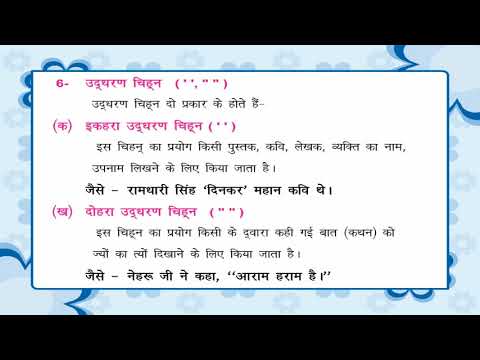 6- उद्धरण चिह्न (' ', " ")
उद्धरण चिह्न दो प्रकार के होते हैं-
(क) इकहरा उद्धरण चिह्न (' ')
इस चिहन् का प्रयोग किसी पुस्तक, कवि, लेखक, व्यक्ति का नाम,
उपनाम लिखने के लिए किया जाता है।
जैसे – रामधारी सिंह ‘दिनकर’ महान कवि थे।
(ख) दोहरा उद्धरण चिह्न (" ")
इस चिह्न का प्रयोग किसी के द्वारा कही गई बात (कथन) को
ज्यों का त्यों दिखाने के लिए किया जाता है।
जैसे – नेहरू जी ने कहा, ‘‘आराम हराम है।’’